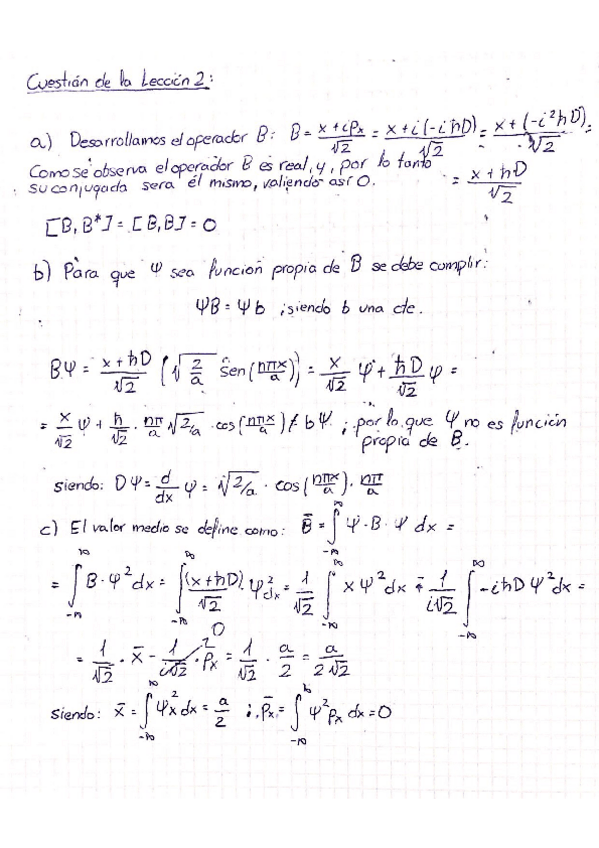 Cuestión de la Lección 2:
a) Desarrollamos el operador B: B = (x + ipₓ)/√2 = (x + i(-iħD))/√2 = (x + (-i²ħD))/√2 =
Como se observa el operador B es real, y, por lo tanto
su conjugada sera él mismo, valiendo así 0. = (x + ħD)/√2
[B, B*] = [B, B] = 0
b) Para que Ψ sea función propia de B se debe cumplir:
ΨB = Ψb ; siendo b una cte.
BΨ = (x + ħD)/√2 (√(2/a) sen(nπx/a)) = x/√2 Ψ + ħD/√2 Ψ =
= x/√2 Ψ + ħ/√2 · nπ/a √2/a · cos(nπx/a) ≠ bΨ ; por lo que Ψ no es función
propia de B.
siendo: DΨ = d/dx Ψ = √2/a · cos(nπx/a) · nπ/a
c) El valor medio se define como: B̄ = ∫_{-∞}^{∞} Ψ·B·Ψ dx =
= ∫_{-∞}^{∞} B·Ψ² dx = ∫_{-∞}^{∞} (x + ħD)/√2 · Ψ² dx = 1/√2 ∫_{-∞}^{∞} xΨ² dx + 1/(i√2) ∫_{-∞}^{∞} -iħDΨ² dx =
= 1/√2 · x̄ - 1/(i√2) · p̄ₓ 0 = 1/√2 · a/2 = a/(2√2)
siendo: x̄ = ∫_{-∞}^{∞} Ψ²x dx = a/2 ; p̄ₓ = ∫_{-∞}^{∞} Ψ²pₓ dx = 0